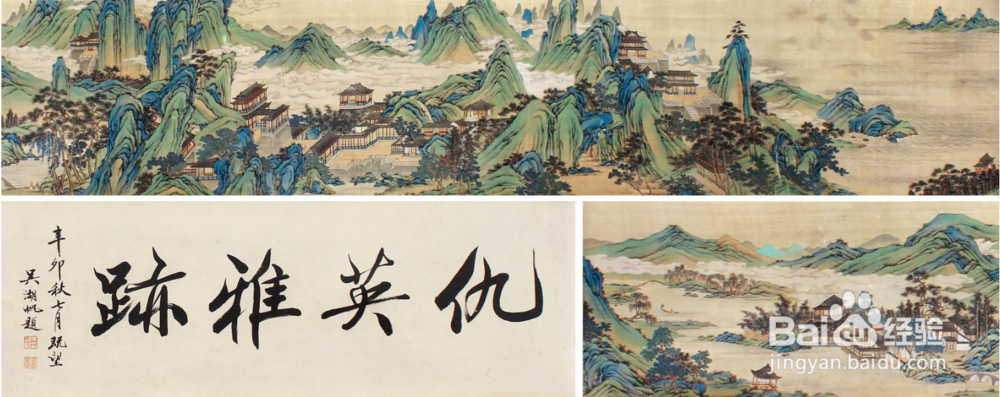 仇英雅跡
辛卯秋七月既望
吴湖帆題
Baidu经验
jingyan.baidu.com